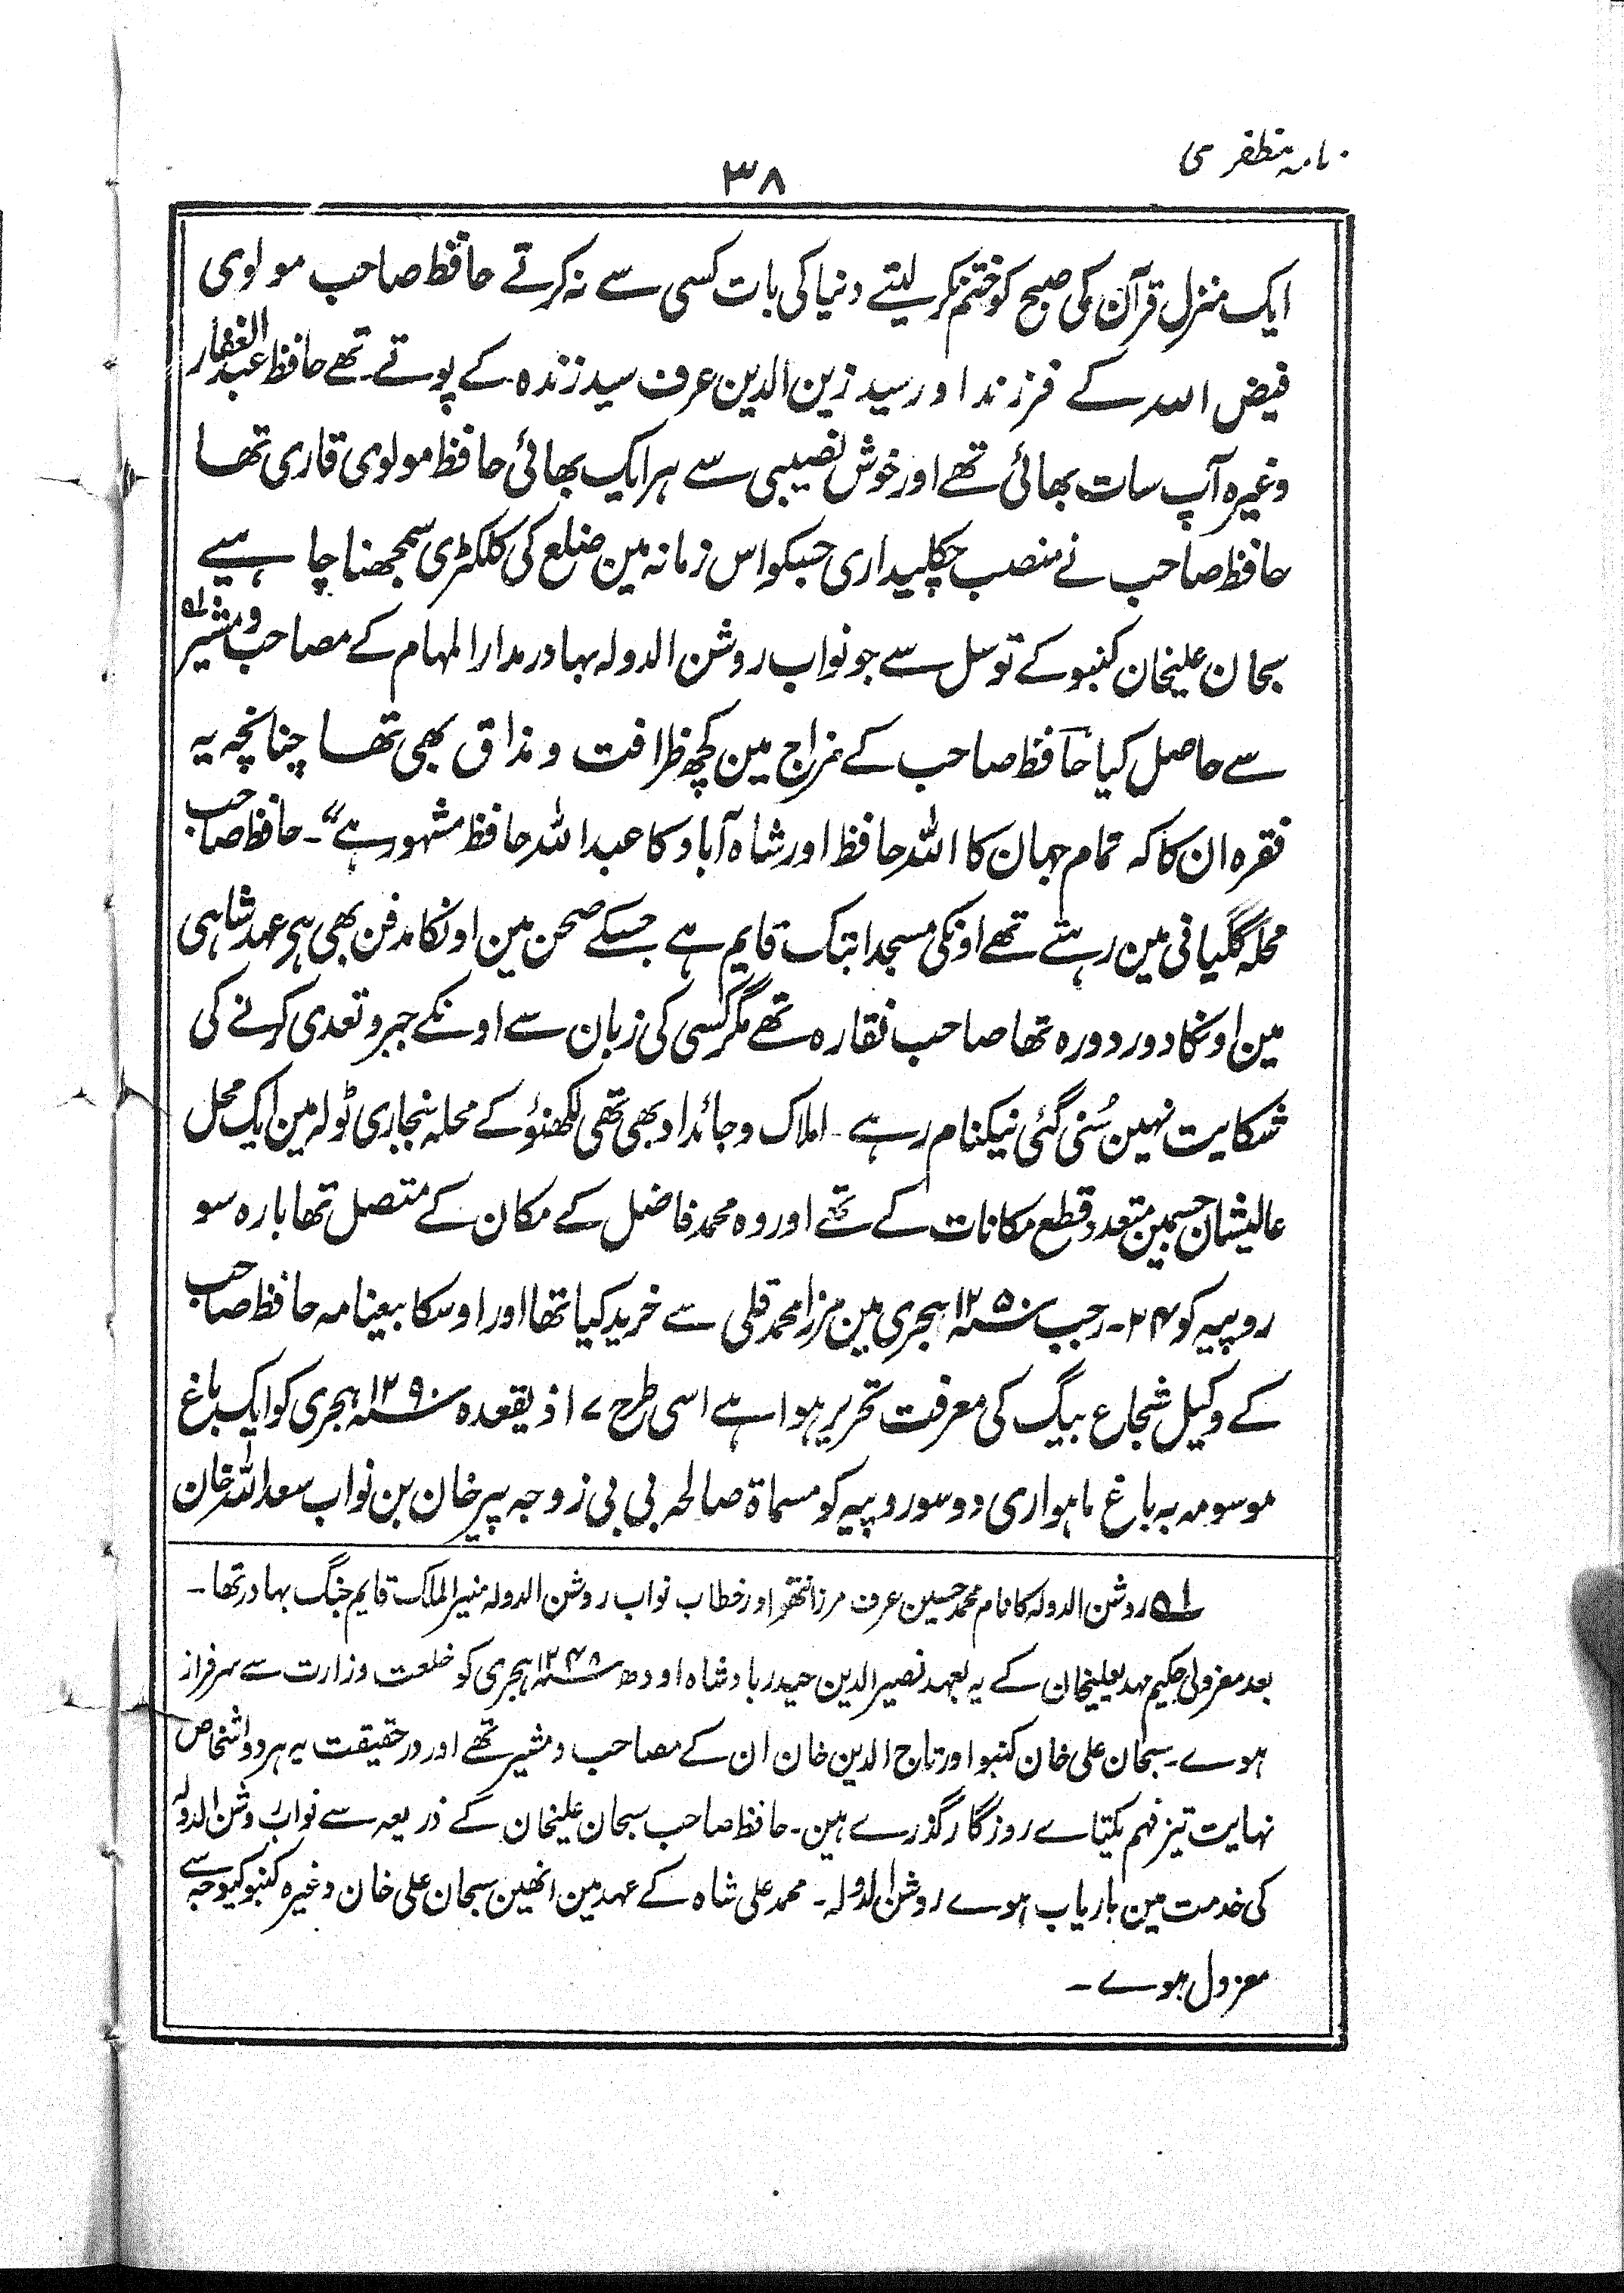 نامہ مظفری
۳۸
ایک منزل قرآن کی صبح کو ختم نکر لیتے دنیا کی بات کسی سے نہ کرتے حافظ صاحب مولوی
فیض اللہ کے فرزند اور سید زین الدین عرف سید زندہ کے پوتے تھے حافظ عبد الغفار
وغیرہ آپ سات بھائی تھے اور خوش نصیبی سے ہر ایک بھائی حافظ مولوی قاری تھا
حافظ صاحب نے منصب چکلیداری جسکو اس زمانہ مین ضلع کی کلکٹری سمجھنا چاہیے
سبحان علیخان کنبو کے توسل سے جو نواب روشن الدولہ بہادر مدار المہام کے مصاحب و مشیر تھے ۱ھ
سے حاصل کیا حافظ صاحب کے مزاج مین کچھ ظرافت و مذاق بھی تھا چنانچہ یہ
فقرہ ان کا کہ تمام جہان کا اللہ حافظ اور شاہ آباد کا عبد اللہ حافظ مشہور ہے“۔ حافظ صاحب
محلہ گگیانی مین رہتے تھے اونکی مسجد ابتک قایم ہے جسکے صحن مین اونکا مدفن بھی ہی عہد شاہی
مین اونکا دور دورہ تھا صاحب نقارہ تھے مگر کسی کی زبان سے اونکے جبر و تعدی کرنے کی
شکایت نہین سُنی گئی نیکنام رہے۔ املاک و جائداد بھی تھی لکھنؤ کے محلہ بنجاری ٹولہ مین ایک محل
عالیشان جسمین متعدد قطع مکانات کے تھے اور وہ محمد فاضل کے مکان کے متصل تھا بارہ سو
روپیہ کو ۲۴۔ رجب ۱۲۵۰؁ ہجری مین مرزا محمد قلی سے خرید کیا تھا اور اوسکا بیعنامہ حافظ صاحب
کے وکیل شجاع بیگ کی معرفت تحریر ہوا ہے اسی طرح ۱۷ ذیقعدہ ۱۲۹۰؁ ہجری کو ایک باغ
موسومہ بہ باغ ماہواری دو سو روپیہ کو مسماۃ صالحہ بی بی زوجہ پیر خان بن نواب سعد اللہ خان
۱ھ روشن الدولہ کا نام محمد حسین عرف مرزا نتھو اور خطاب نواب روشن الدولہ منیر الملک قایم جنگ بہادر تھا۔
بعد معزولی حکیم مہدیعلیخان کے یہ بعہد نصیر الدین حیدر بادشاہ اودھ ۱۲۴۸؁ ہجری کو خلعت وزارت سے سرفراز
ہوے۔ سبحان علی خان کنبو اور تاج الدین خان ان کے مصاحب و مشیر تھے اور درحقیقت یہ ہر دو اشخاص
نہایت تیز فہم یکتاے روزگار گذرے ہین۔ حافظ صاحب سبحان علیخان کے ذریعہ سے نواب روشن الدولہ
کی خدمت مین باریاب ہوے روشن الدولہ۔ محمد علی شاہ کے عہد مین انھین سبحان علی خان وغیرہ کنبو کیوجہ سے
معزول ہوے۔